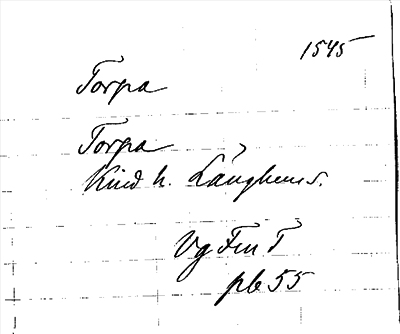 1545
Torpa
Torpa
Kind h. Länghem s.
Vg Fru T
pb 55